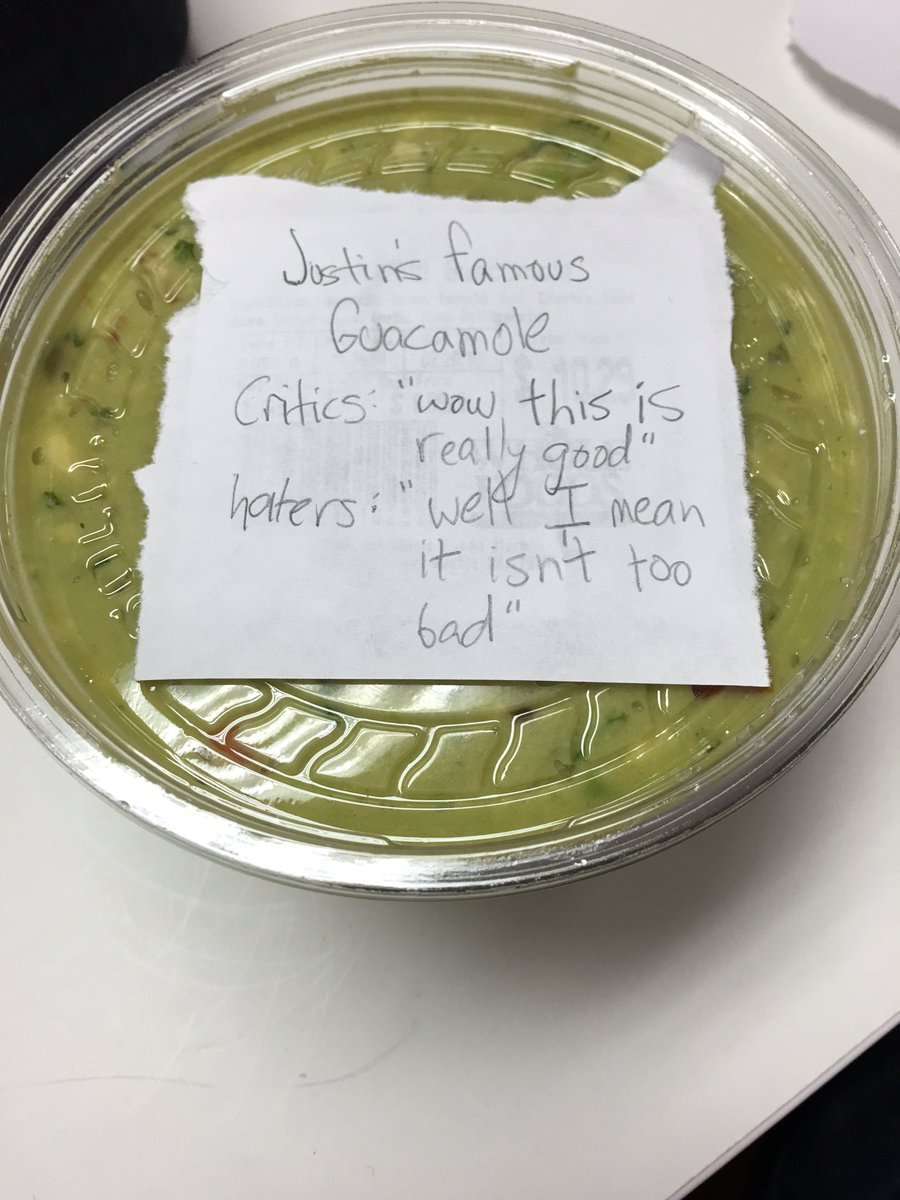 Justin's famous
Guacamole
Critics: "wow this is
really good"
haters: "well I mean
it isn't too
bad"